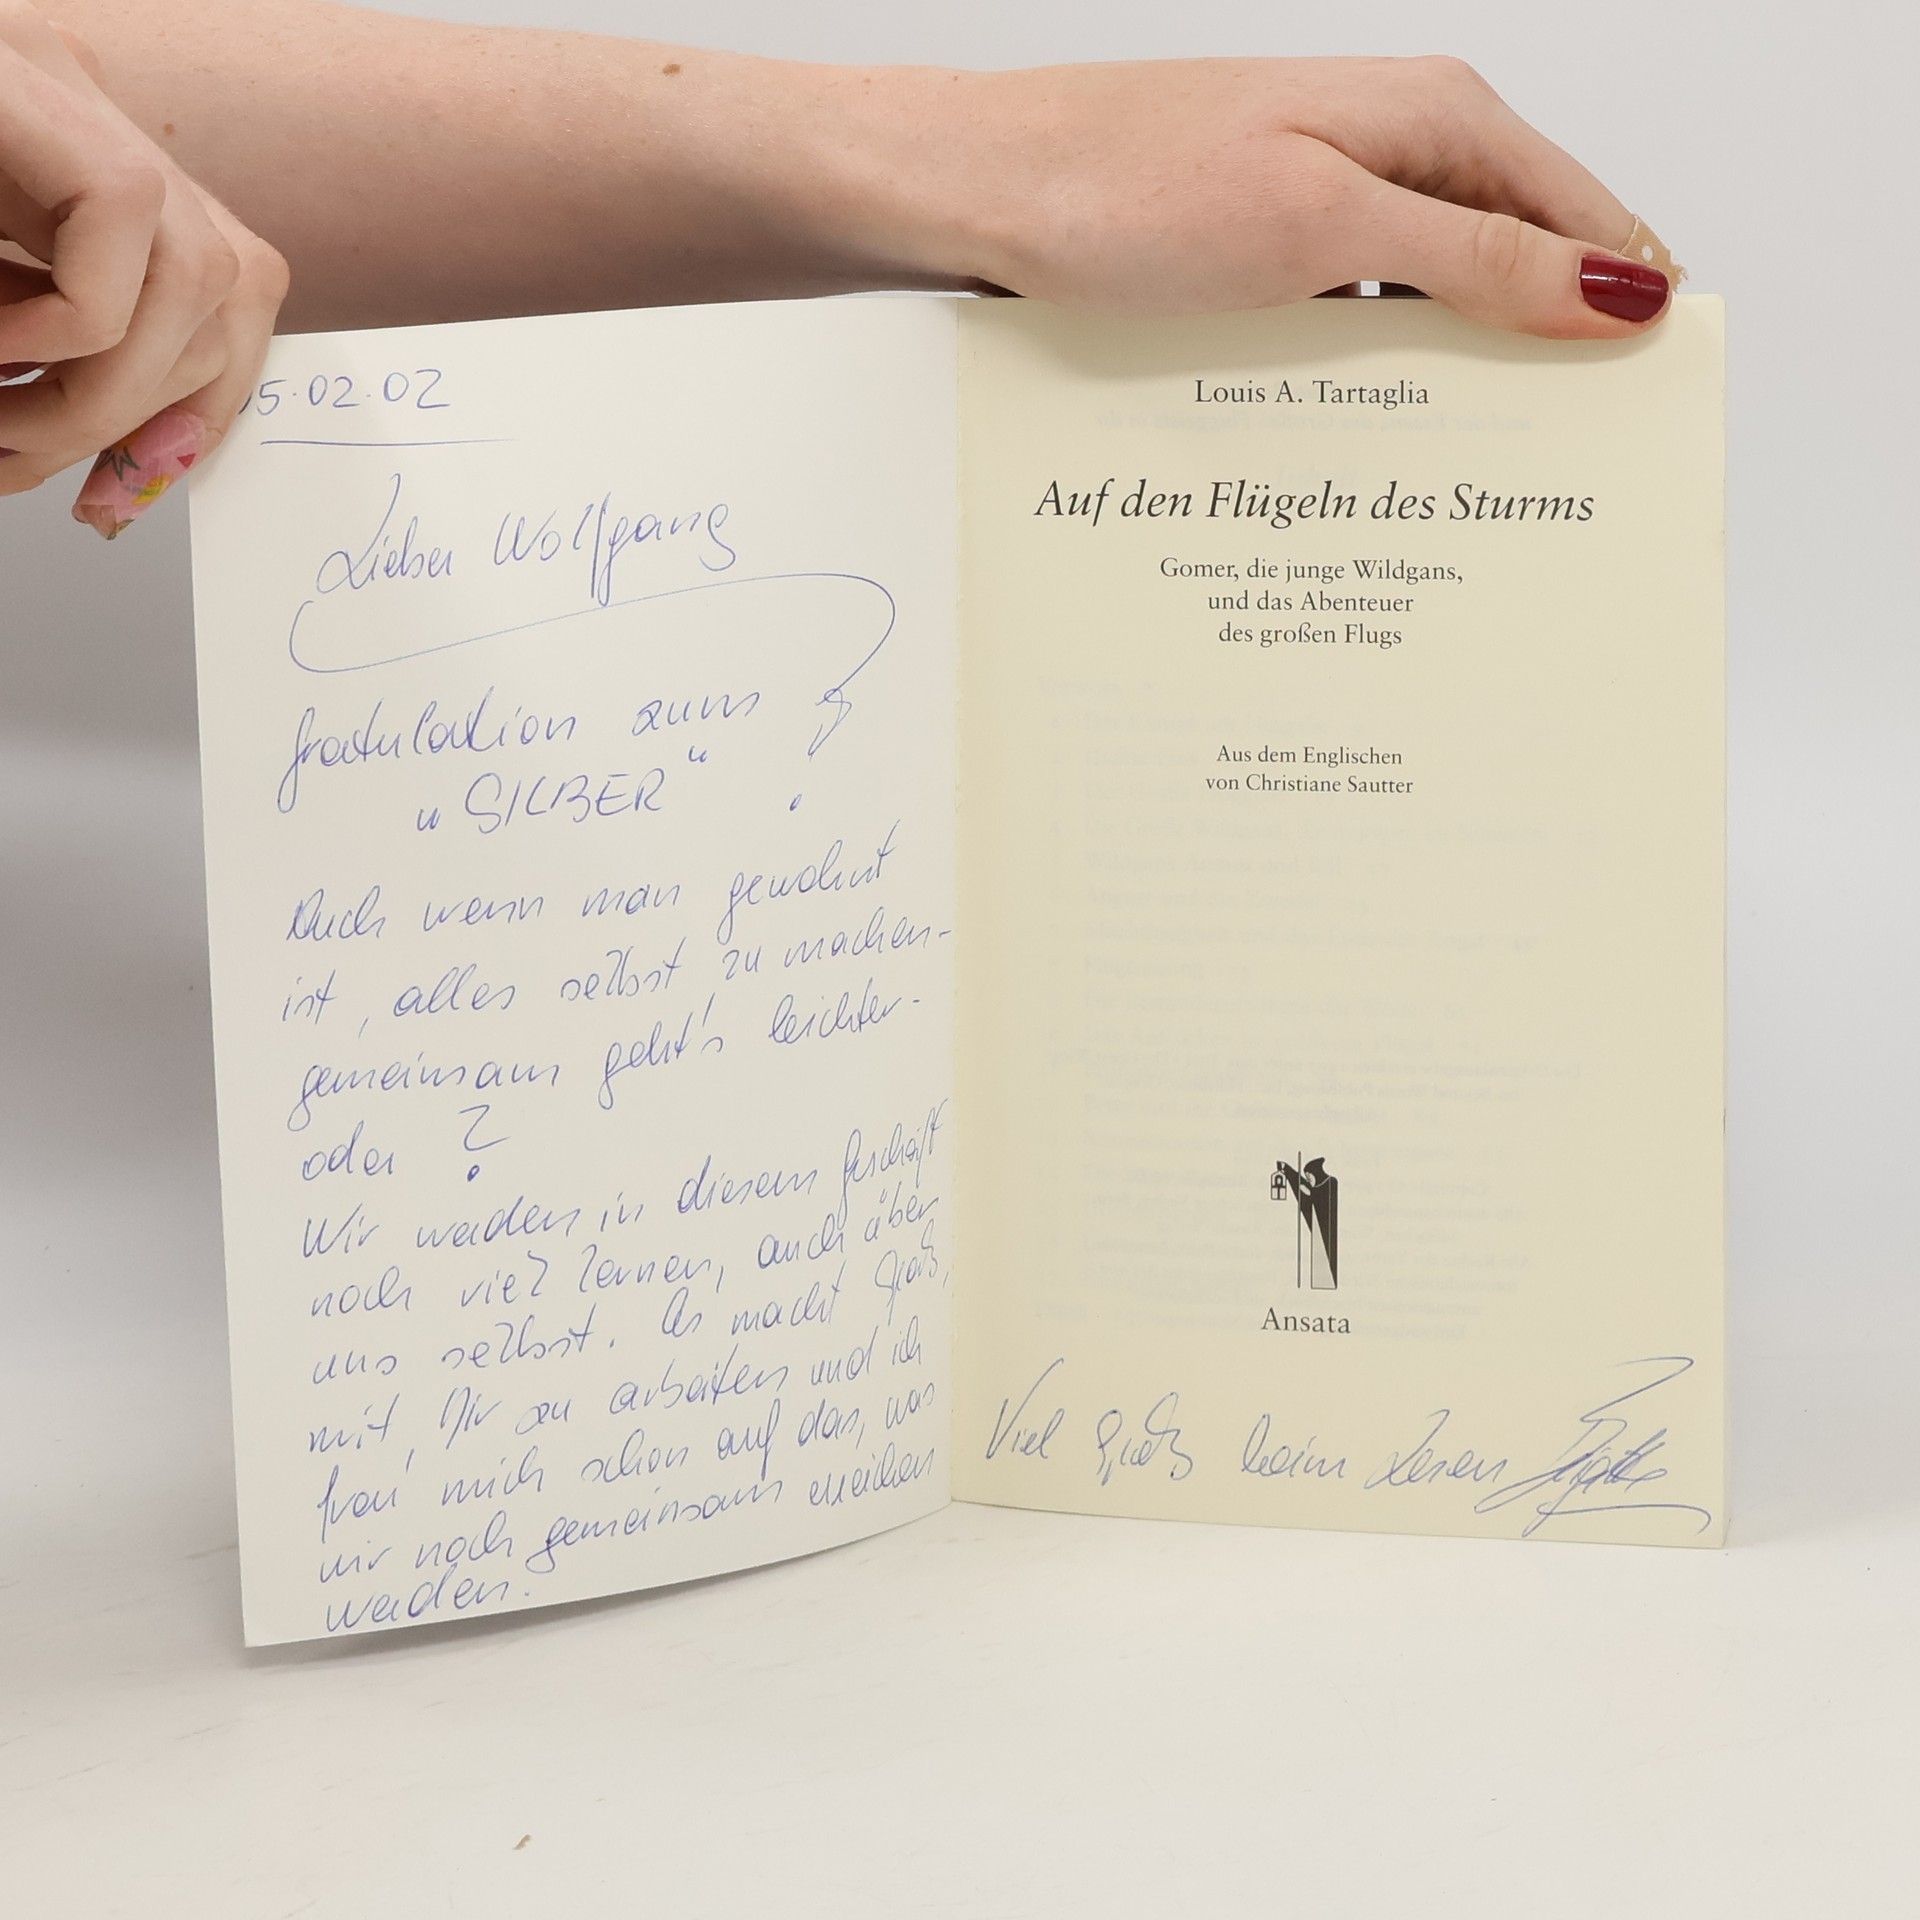 5.02.02
Lieber Wolfgang
Gratulation zum
"SILBER" !
Auch wenn man gewohnt
ist, alles selbst zu machen-
gemeinsam geht's leichter-
oder ?
Wir werden in diesem Geschäft
noch viel lernen, auch über
uns selbst. Es macht Spaß,
mit Dir zu arbeiten und ich
freu' mich schon auf das, was
wir noch gemeinsam erreichen
werden.
Louis A. Tartaglia
Auf den Flügeln des Sturms
Gomer, die junge Wildgans,
und das Abenteuer
des großen Flugs
Aus dem Englischen
von Christiane Sautter
Ansata
Viel Spaß beim Lesen